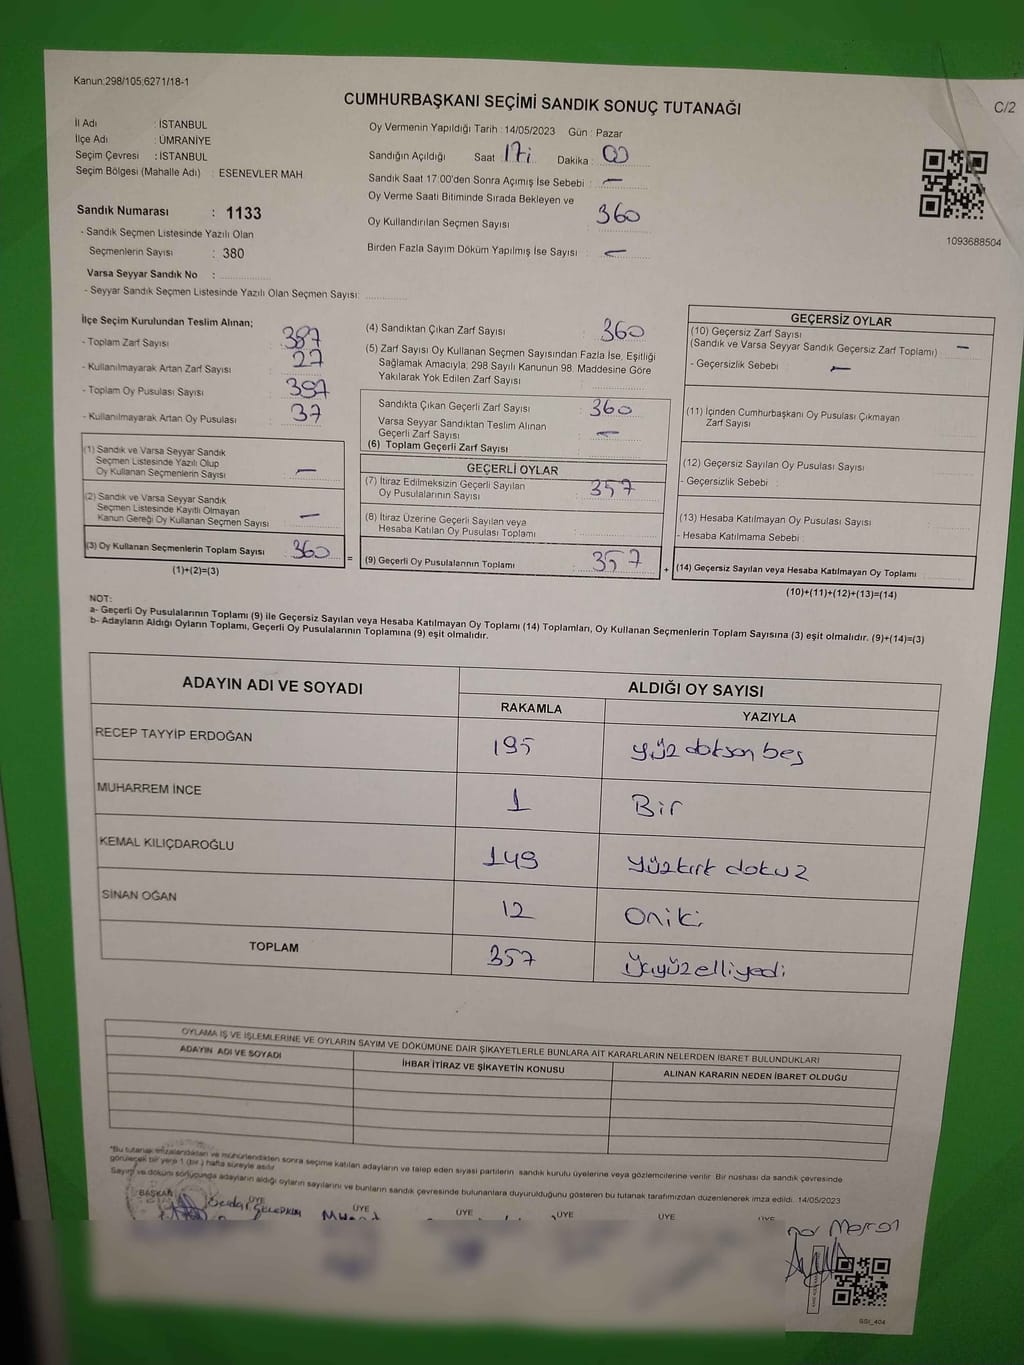 Kanun:298/105;6271/18-1
CUMHURBAŞKANI SEÇİMİ SANDIK SONUÇ TUTANAĞI
C/2
İl Adı : İSTANBUL
İlçe Adı : ÜMRANİYE
Seçim Çevresi : İSTANBUL
Seçim Bölgesi (Mahalle Adı) : ESENEVLER MAH.
Sandık Numarası : 1133
- Sandık Seçmen Listesinde Yazılı Olan
Seçmenlerin Sayısı : 380
Varsa Seyyar Sandık No :
- Seyyar Sandık Seçmen Listesinde Yazılı Olan Seçmen Sayısı:
Oy Vermenin Yapıldığı Tarih : 14/05/2023 Gün : Pazar
Sandığın Açıldığı Saat 17: Dakika : 00
Sandık Saat 17.00'den Sonra Açımış İse Sebebi : —
Oy Verme Saati Bitiminde Sırada Bekleyen ve
Oy Kullandırılan Seçmen Sayısı : 360
Birden Fazla Sayım Döküm Yapılmış İse Sayısı : —
1093688504
İlçe Seçim Kurulundan Teslim Alınan;
- Toplam Zarf Sayısı : 387
- Kullanılmayarak Artan Zarf Sayısı : 27
- Toplam Oy Pusulası Sayısı : 397
- Kullanılmayarak Artan Oy Pusulası : 37
(1) Sandık ve Varsa Seyyar Sandık
Seçmen Listesinde Yazılı Olup
Oy Kullanan Seçmenlerin Sayısı : —
(2) Sandık ve Varsa Seyyar Sandık
Seçmen Listesinde Kayıtlı Olmayan
Kanun Gereği Oy Kullanan Seçmen Sayısı : —
(3) Oy Kullanan Seçmenlerin Toplam Sayısı : 360
(1)+(2)=(3)
=
(4) Sandıktan Çıkan Zarf Sayısı : 360
(5) Zarf Sayısı Oy Kullanan Seçmen Sayısından Fazla İse, Eşitliği
Sağlamak Amacıyla, 298 Sayılı Kanunun 98. Maddesine Göre
Yakılarak Yok Edilen Zarf Sayısı :
Sandıkta Çıkan Geçerli Zarf Sayısı : 360
Varsa Seyyar Sandıktan Teslim Alınan
Geçerli Zarf Sayısı : —
(6) Toplam Geçerli Zarf Sayısı
GEÇERLİ OYLAR
(7) İtiraz Edilmeksizin Geçerli Sayılan
Oy Pusulalarının Sayısı : 357
(8) İtiraz Üzerine Geçerli Sayılan veya
Hesaba Katılan Oy Pusulası Toplamı :
(9) Geçerli Oy Pusulalarının Toplamı : 357
+
GEÇERSİZ OYLAR
(10) Geçersiz Zarf Sayısı
(Sandık ve Varsa Seyyar Sandık Geçersiz Zarf Toplamı) : —
- Geçersizlik Sebebi : —
(11) İçinden Cumhurbaşkanı Oy Pusulası Çıkmayan
Zarf Sayısı
(12) Geçersiz Sayılan Oy Pusulası Sayısı
- Geçersizlik Sebebi :
(13) Hesaba Katılmayan Oy Pusulası Sayısı
- Hesaba Katılmama Sebebi :
(14) Geçersiz Sayılan veya Hesaba Katılmayan Oy Toplamı
(10)+(11)+(12)+(13)=(14)
NOT:
a- Geçerli Oy Pusulalarının Toplamı (9) ile Geçersiz Sayılan veya Hesaba Katılmayan Oy Toplamı (14) Toplamları, Oy Kullanan Seçmenlerin Toplam Sayısına (3) eşit olmalıdır. (9)+(14)=(3)
b- Adayların Aldığı Oyların Toplamı, Geçerli Oy Pusulalarının Toplamına (9) eşit olmalıdır.
ADAYIN ADI VE SOYADI ALDIĞI OY SAYISI
RAKAMLA YAZIYLA
RECEP TAYYİP ERDOĞAN 195 yüz doksan beş
MUHARREM İNCE 1 Bir
KEMAL KILIÇDAROĞLU 149 yüzkırk dokuz
SİNAN OĞAN 12 Oniki
TOPLAM 357 Üçyüz elliyedi
OYLAMA İŞ VE İŞLEMLERİNE VE OYLARIN SAYIM VE DÖKÜMÜNE DAİR ŞİKAYETLERLE BUNLARA AİT KARARLARIN NELERDEN İBARET BULUNDUKLARI
ADAYIN ADI VE SOYADI İHBAR İTİRAZ VE ŞİKAYETİN KONUSU ALINAN KARARIN NEDEN İBARET OLDUĞU
*Bu tutanak imzalandıktan ve mühürlendikten sonra seçime katılan adayların ve talep eden siyasi partilerin sandık kurulu üyelerine veya gözlemcilerine verilir. Bir nüshası da sandık çevresinde
görülecek bir yere 1 (bir) hafta süreyle asılır.
Sayım ve döküm sonucunda adayların aldığı oyların sayılarını ve bunların sandık çevresinde bulunanlara duyurulduğunu gösteren bu tutanak tarafımızdan düzenlenerek imza edildi. 14/05/2023
BAŞKAN ÜYE ÜYE ÜYE ÜYE ÜYE ÜYE
GSI_404